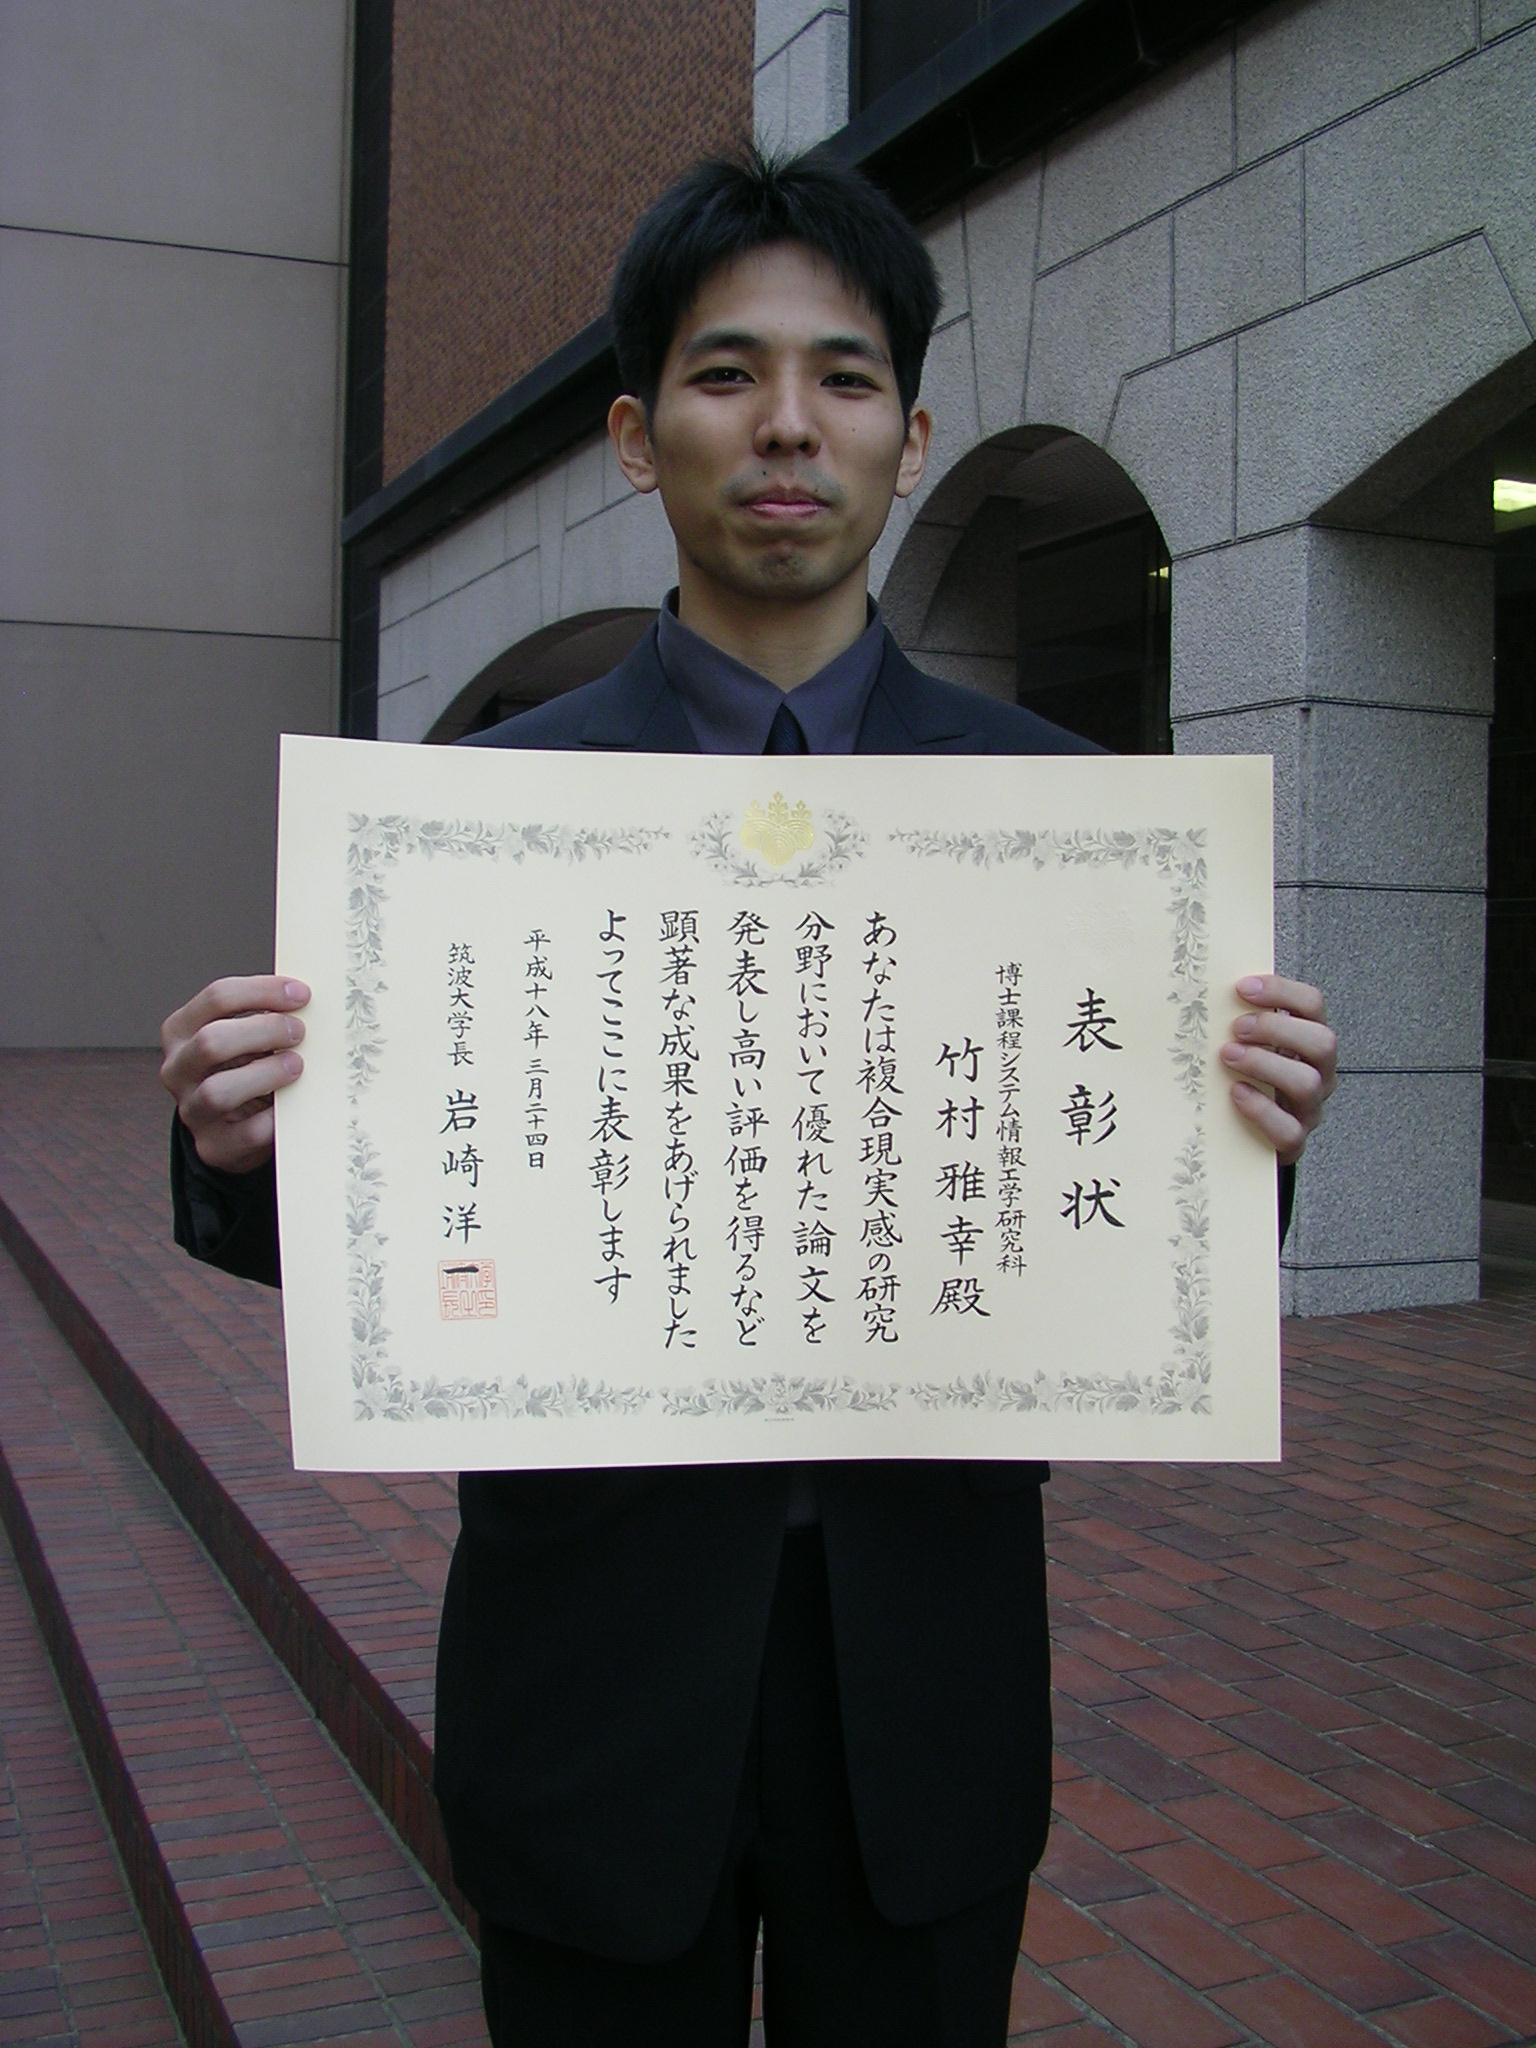 表彰状
博士課程システム情報工学研究科
竹村雅幸殿
あなたは複合現実感の研究
分野において優れた論文を
発表し高い評価を得るなど
顕著な成果をあげられました
よってここに表彰します
平成十八年三月二十四日
筑波大学長 岩崎洋一